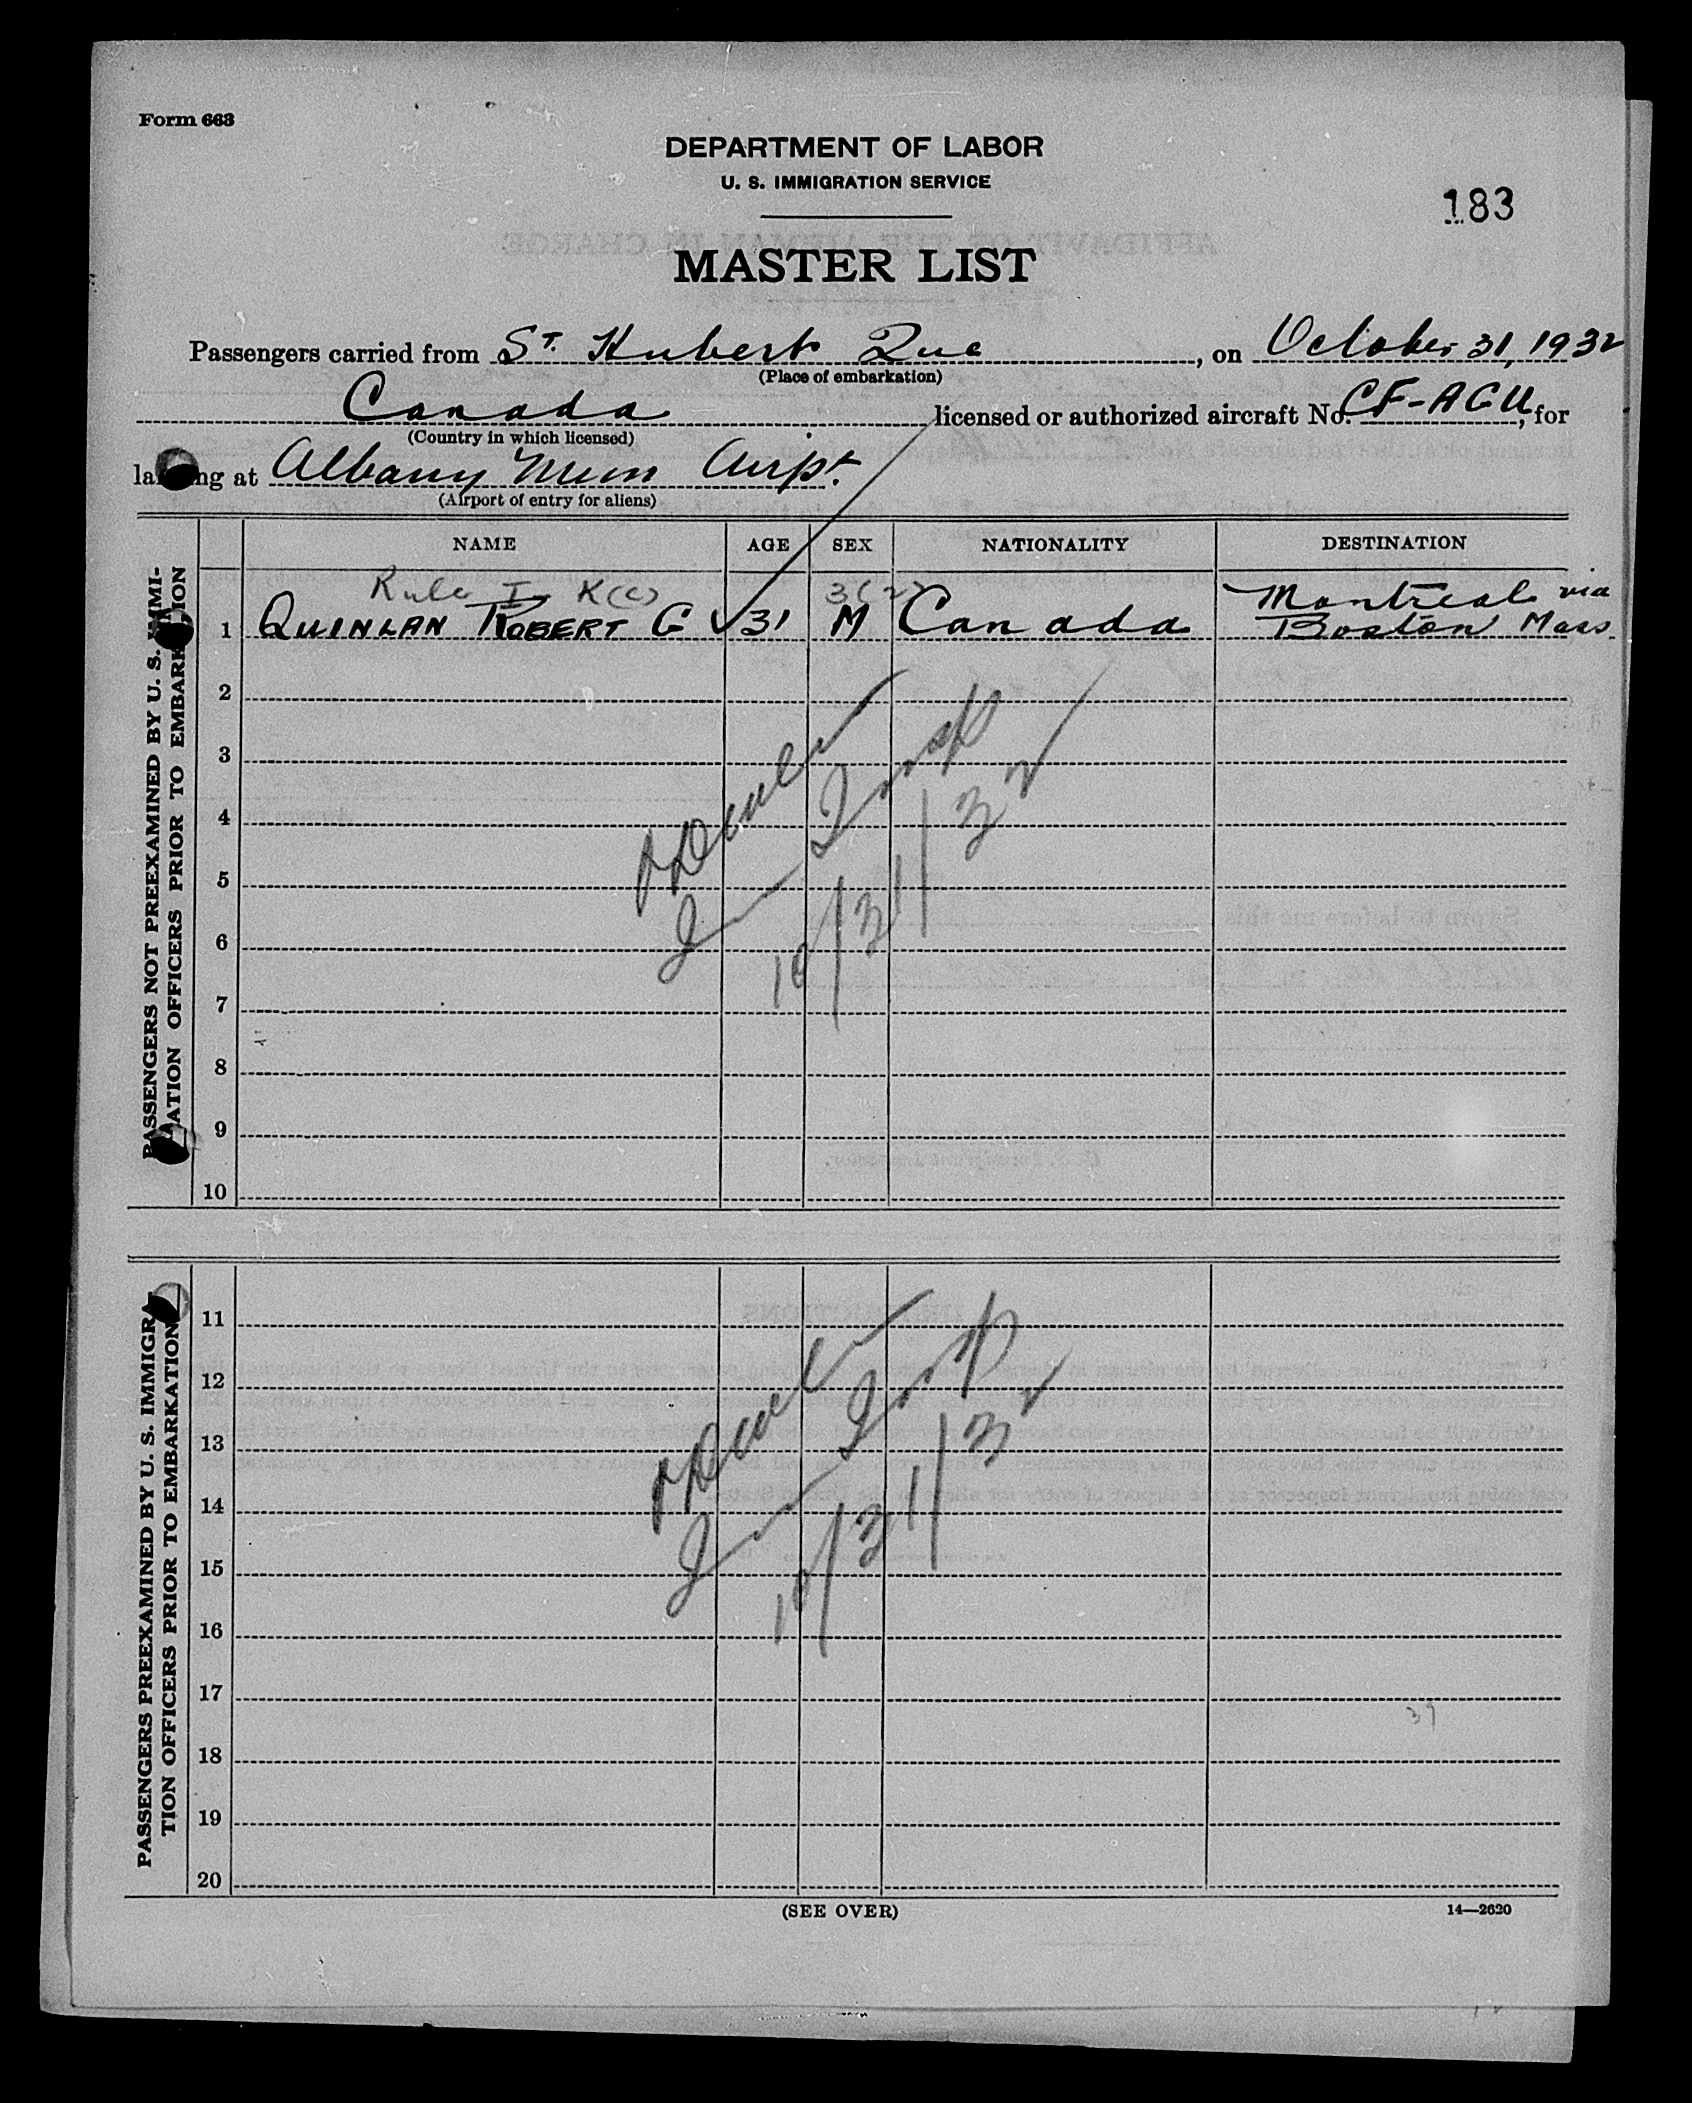 Form 663
DEPARTMENT OF LABOR
U. S. IMMIGRATION SERVICE
183
MASTER LIST
Passengers carried from St. Hubert Que, on October 31, 1932
(Place of embarkation)
Canada licensed or authorized aircraft No. CF-AGU, for
(Country in which licensed)
landing at Albany Mun Airpt.
(Airport of entry for aliens)
NAME AGE SEX NATIONALITY DESTINATION
Rule I K(c) 3(2) Montreal via
1 QUINLAN ROBERT G 31 M Canada Boston Mass
2
3
4
5
6
7
8
9
10
Imm Insp
10/31/32
PASSENGERS NOT PREEXAMINED BY U. S. IMMI-
GRATION OFFICERS PRIOR TO EMBARKATION
11
12
13
14
15
16
17
18
19
20
Imm Insp
10/31/32
39
PASSENGERS PREEXAMINED BY U. S. IMMIGRA-
TION OFFICERS PRIOR TO EMBARKATION
(SEE OVER)
14—2620